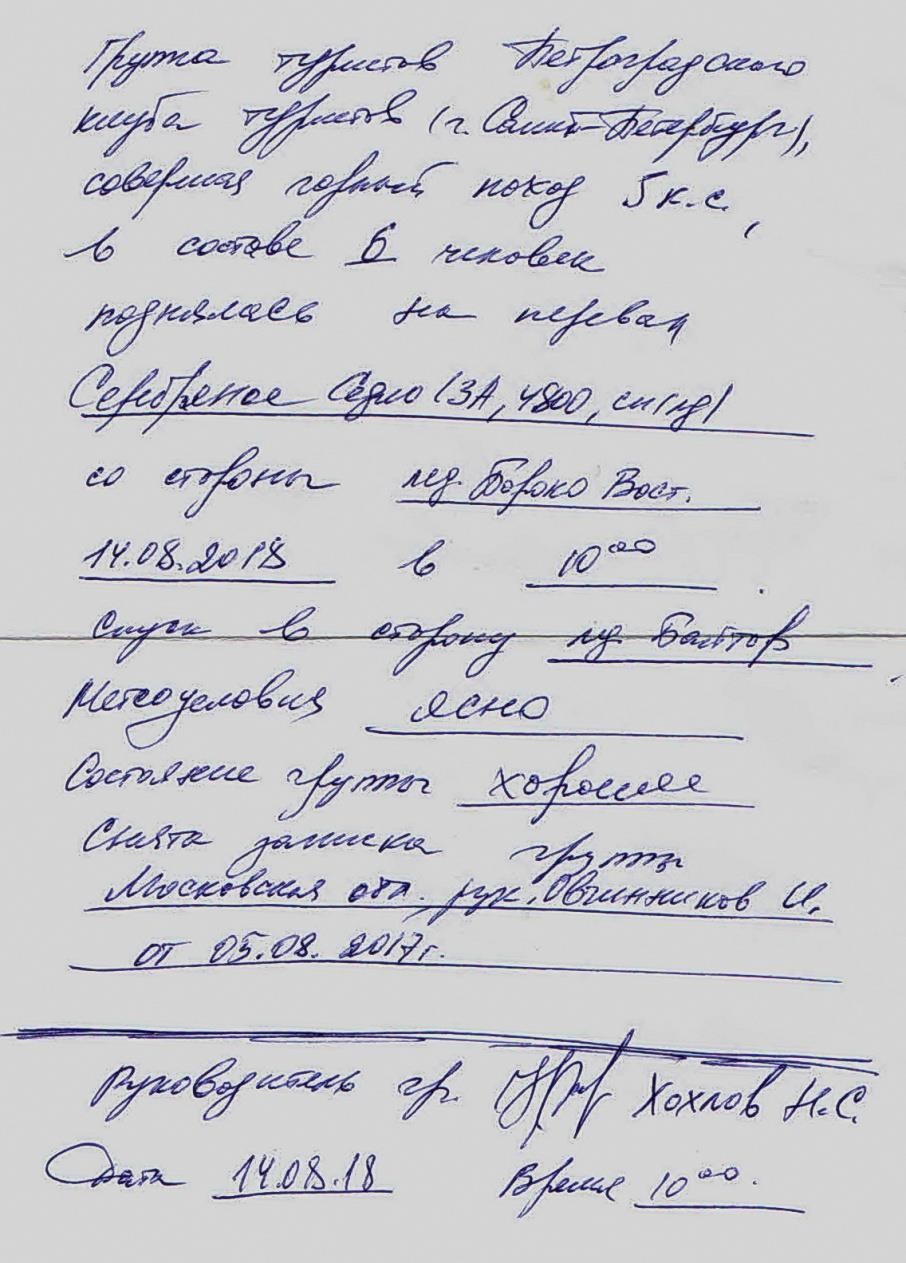 Группа туристов Петроградского
клуба туристов (г. Санкт-Петербург),
совершая горный поход 5 к.с.,
в составе 6 человек
поднялась на перевал
Серебряное Седло (3А, 4800, сн/лд)
со стороны лед. Бороко Вост.
14.08.2018 в 10⁰⁰.
Спуск в сторону лед.
Метеоусловия ясно
Состояние группы хорошее
Снята записка группы
Московская обл. рук. Овчинников И.
от 05.08.2017г.
Руководитель гр. Хохлов Н.С.
Дата 14.08.18 Время 10⁰⁰.